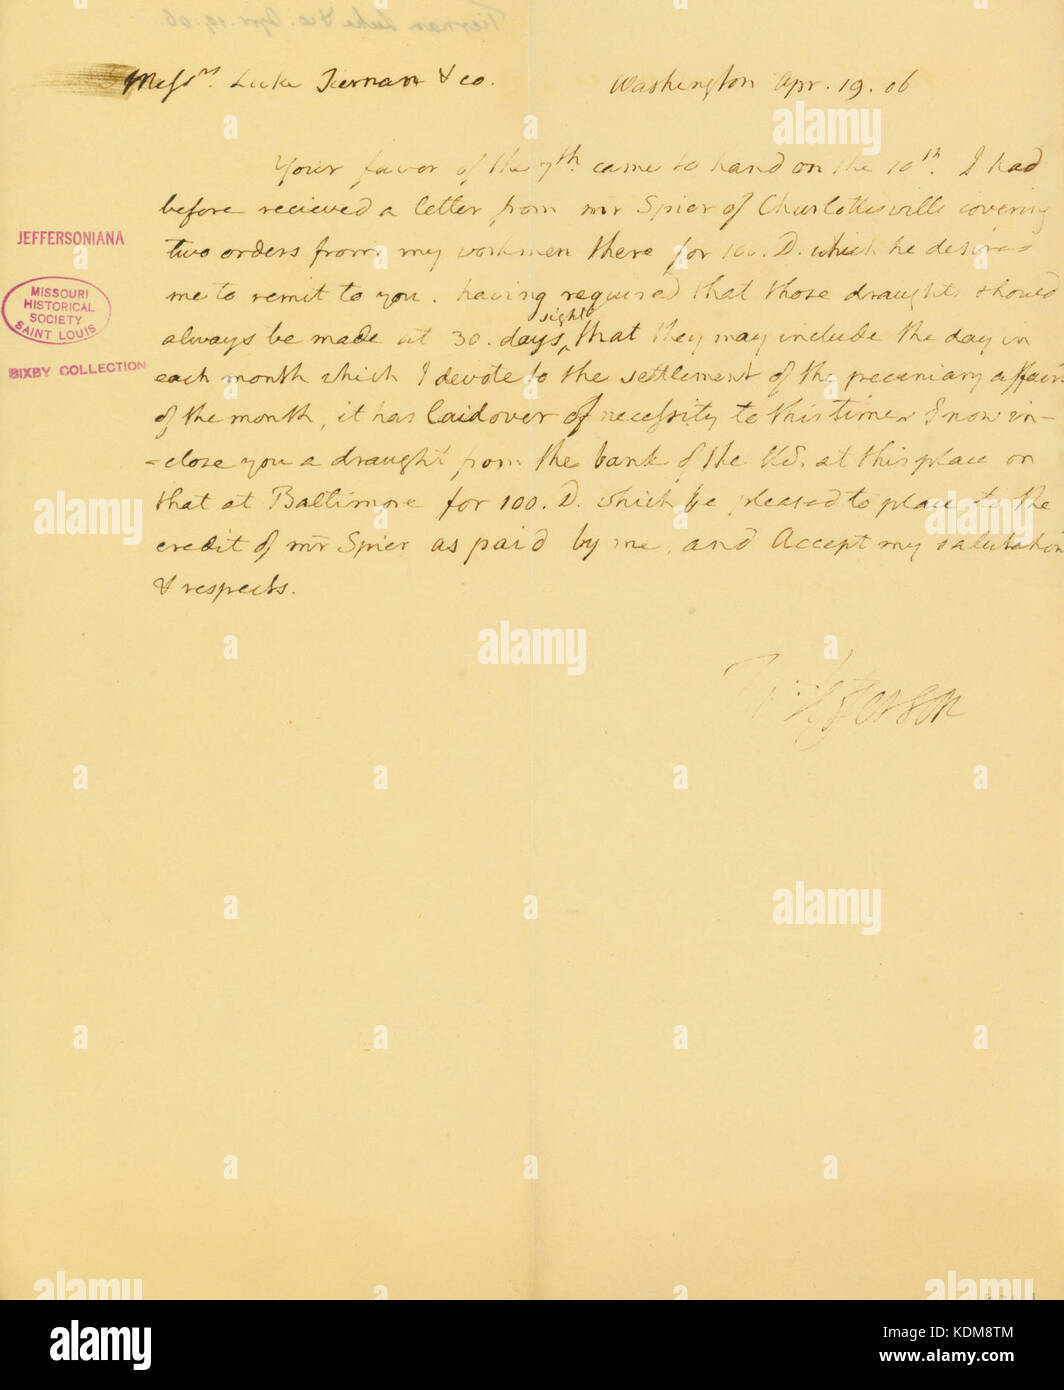 Mess^rs. Luke Tiernan & co.
Washington Apr. 19. 06
Your favor of the 7th. came to hand on the 10th. I had
before recieved a letter from mr Spier of Charlottesville covering
two orders from my workmen there for 100. D. which he desires
me to remit to you. having required that those draughts should
always be made at 30. days sight, that they may include the day in
each month which I devote to the settlement of the pecuniary affairs
of the month, it has laid over of necessity to this time. I now in-
-close you a draught from the bank of the US. at this place on
that at Baltimore for 100. D. which be pleased to place to the
credit of mr Spier as paid by me, and Accept my salutation
& respects.
Th: Jefferson
JEFFERSONIANA
MISSOURI
HISTORICAL
SOCIETY
SAINT LOUIS
BIXBY COLLECTION
alamy
Image ID: KDM8TM
www.alamy.com